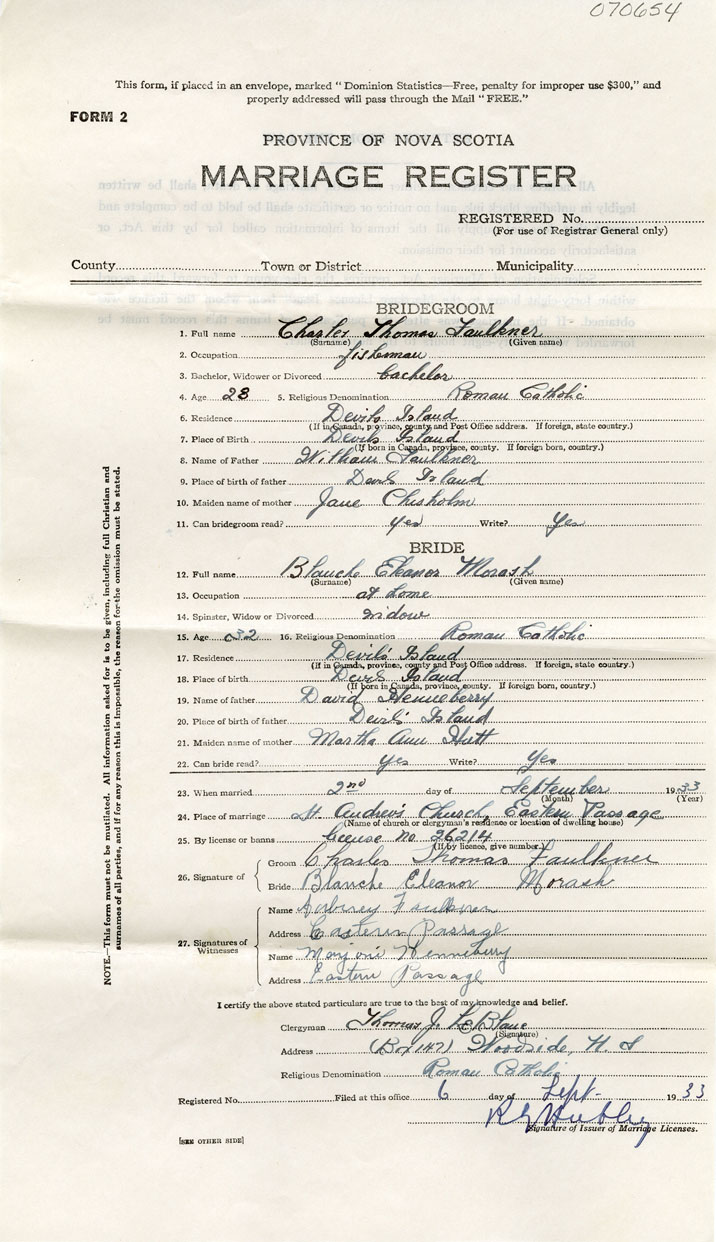 070654
This form, if placed in an envelope, marked "Dominion Statistics—Free, penalty for improper use $300," and
properly addressed will pass through the Mail "FREE."
FORM 2
PROVINCE OF NOVA SCOTIA
MARRIAGE REGISTER
REGISTERED No.
(For use of Registrar General only)
County Town or District Municipality
BRIDEGROOM
1. Full name Charles Thomas Faulkner
(Surname) (Given name)
2. Occupation fisherman
3. Bachelor, Widower or Divorced bachelor
4. Age 28 5. Religious Denomination Roman Catholic
6. Residence Devils Island
(If in Canada, province, county and Post Office address. If foreign, state country.)
7. Place of Birth Devils Island
(If born in Canada, province, county. If foreign born, country.)
8. Name of Father William Faulkner
9. Place of birth of father Devils Island
10. Maiden name of mother Jane Chisholm
11. Can bridegroom read? yes Write? Yes
BRIDE
12. Full name Blanche Eleanor Morash
(Surname) (Given name)
13. Occupation at home
14. Spinster, Widow or Divorced widow
15. Age 32 16. Religious Denomination Roman Catholic
17. Residence Devils' Island
(If in Canada, province, county and Post Office address. If foreign, state country.)
18. Place of birth Devils Island
(If born in Canada, province, county. If foreign born, country.)
19. Name of father David Henneberry
20. Place of birth of father Devils' Island
21. Maiden name of mother Martha Ann Hutt
22. Can bride read? yes Write? Yes
23. When married 2nd day of September 1933
(Month) (Year)
24. Place of marriage St. Andrew's Church, Eastern Passage
(Name of church or clergyman's residence or location of dwelling house)
25. By license or banns license no 26214
(If by licence, give number.)
26. Signature of
Groom Charles Thomas Faulkner
Bride Blanche Eleanor Morash
27. Signatures of Witnesses
Name Faulkner
Address Eastern Passage
Name Marjorie Henneberry
Address Eastern Passage
I certify the above stated particulars are true to the best of my knowledge and belief.
Clergyman Thomas J. LeBlanc
(Signature)
Address (Box 1147) Woodside, N. S
Religious Denomination Roman Catholic
Registered No. Filed at this office 6 day of Sept. 1933
Hubley
Signature of Issuer of Marriage Licenses.
[SEE OTHER SIDE]
NOTE.—This form must not be mutilated. All information asked for is to be given, including full Christian and
surnames of all parties, and if for any reason this is impossible, the reason for the omission must be stated.